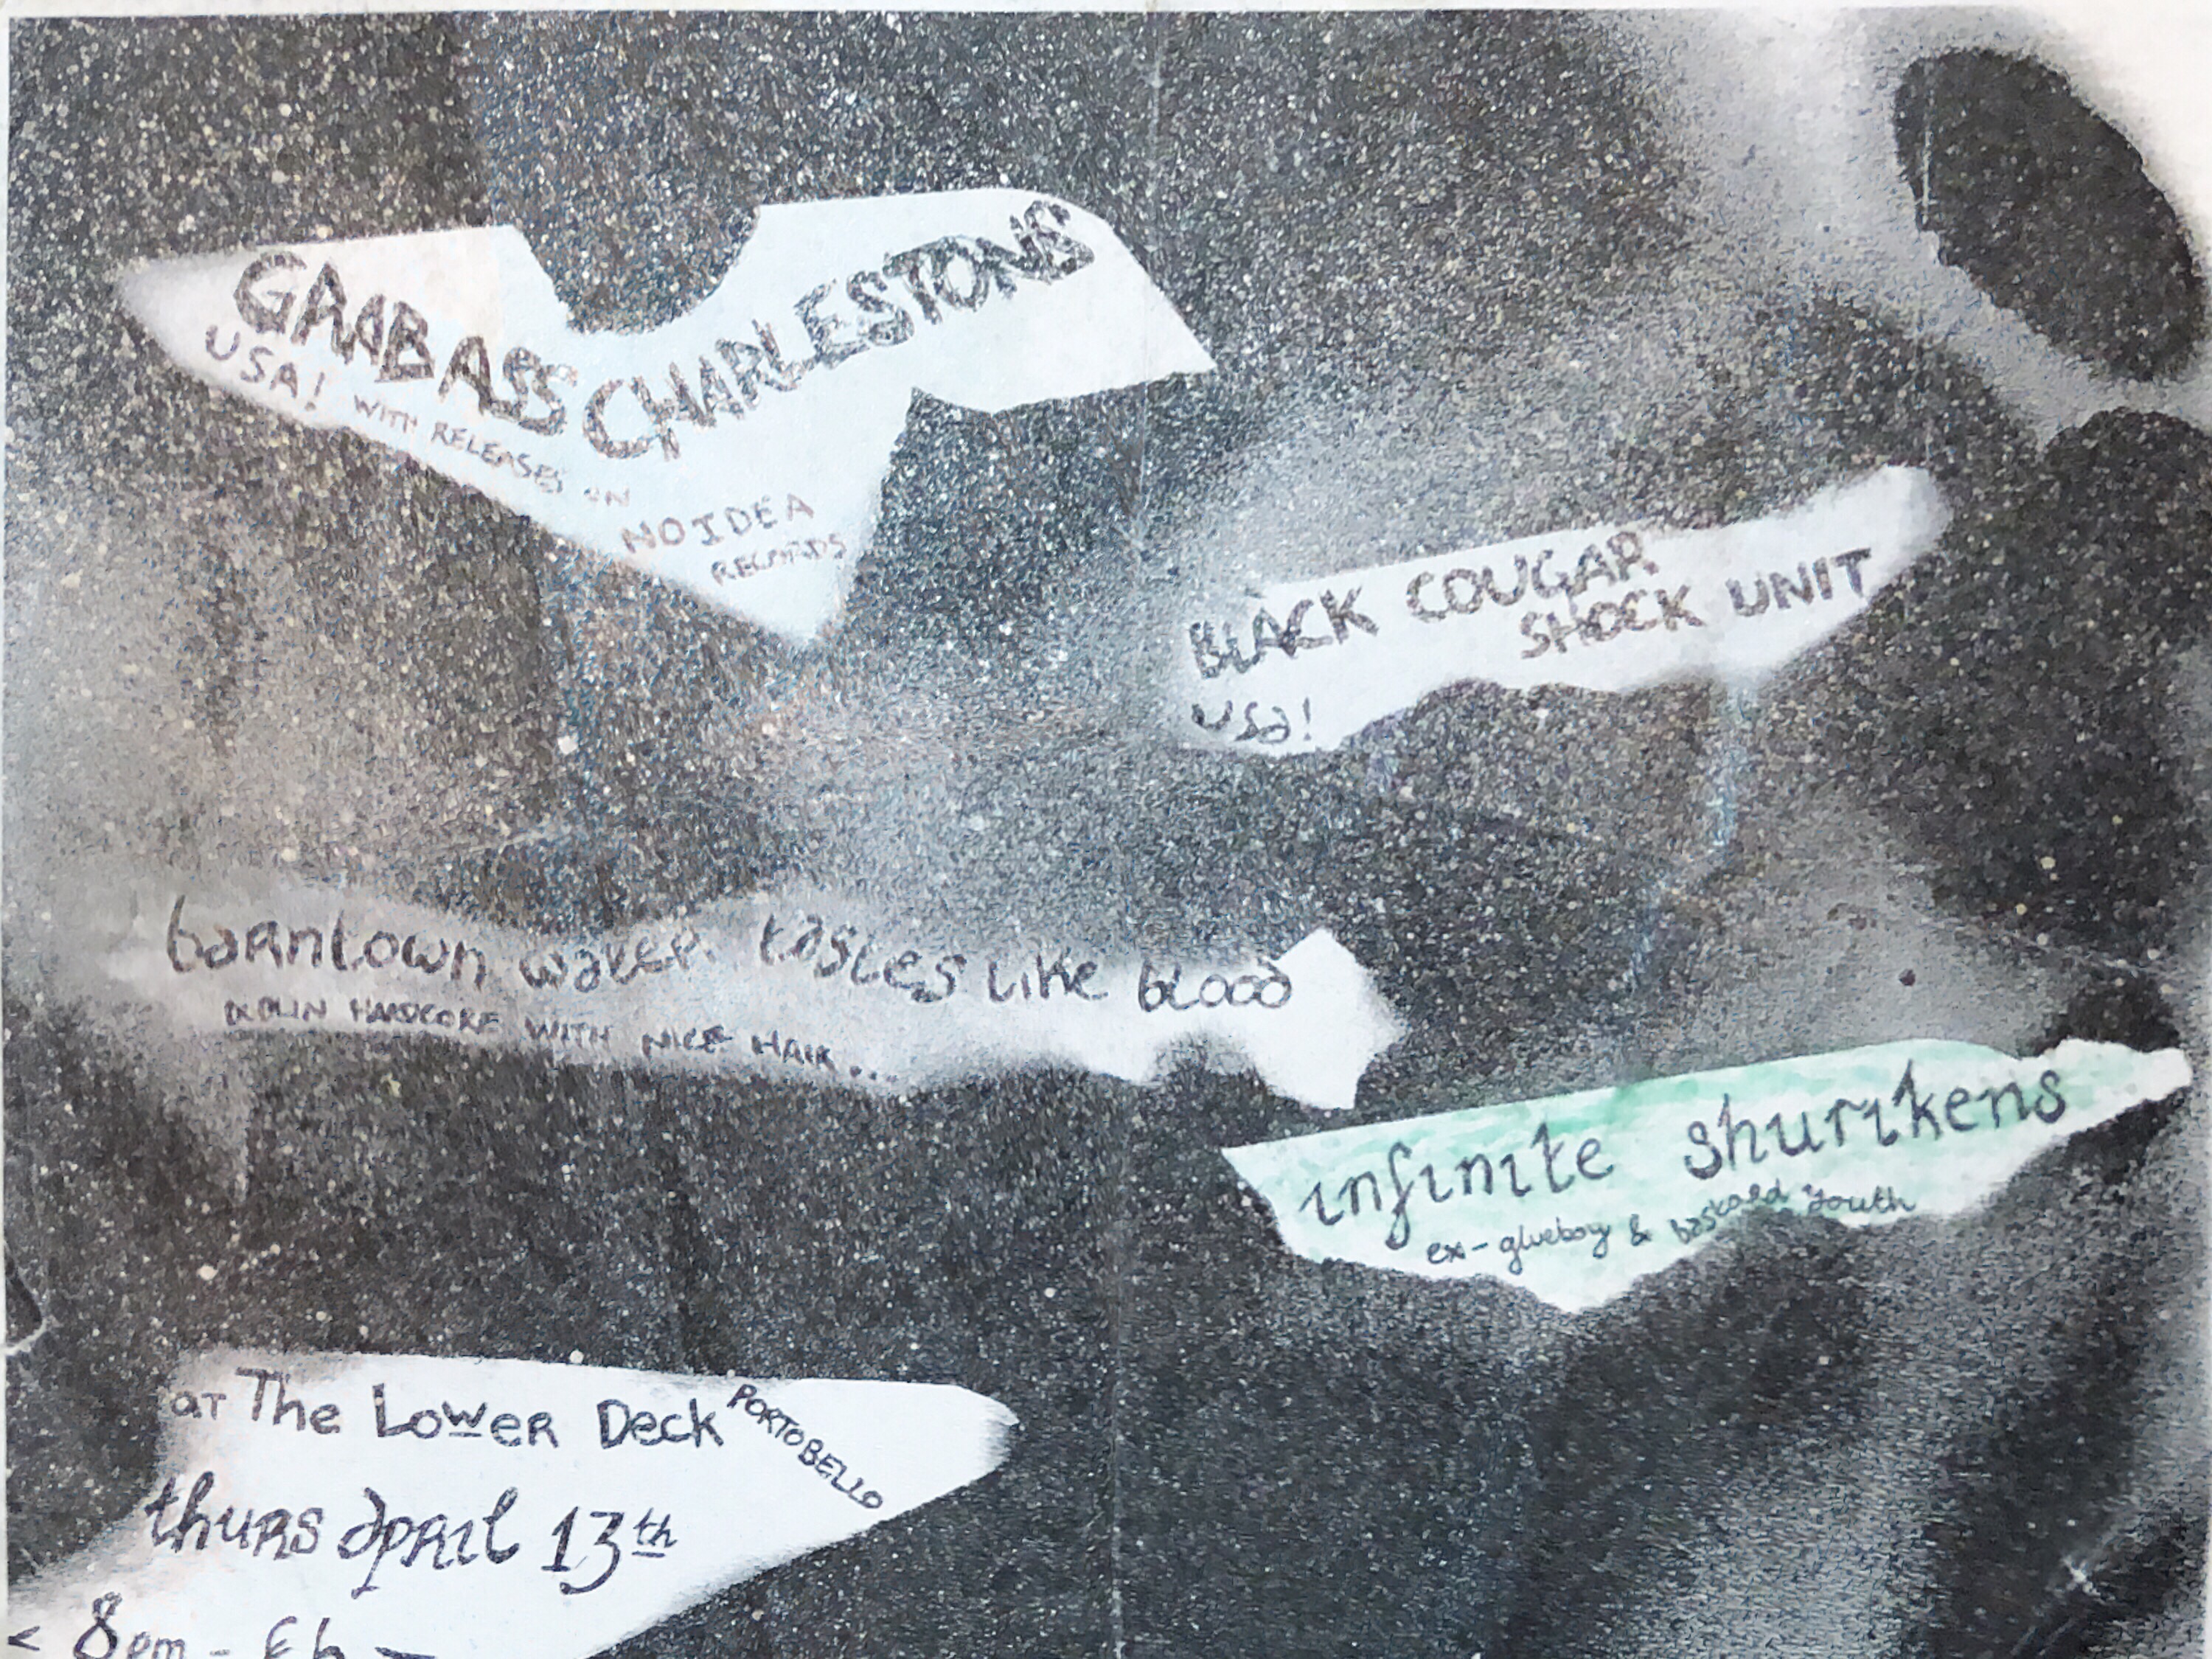 GRABASS CHARLESTONS
USA! WITH RELEASES ON
NO IDEA
RECORDS
BLACK COUGAR
SHOCK UNIT
USA!
barntown water tastes like blood
DUBLIN HARDCORE WITH NICE HAIR...
infinite shurikens
ex-glueboy & bastard youth
aT The LoweR Deck PORTOBELLO
thurs april 13th
< 8pm - €6 -